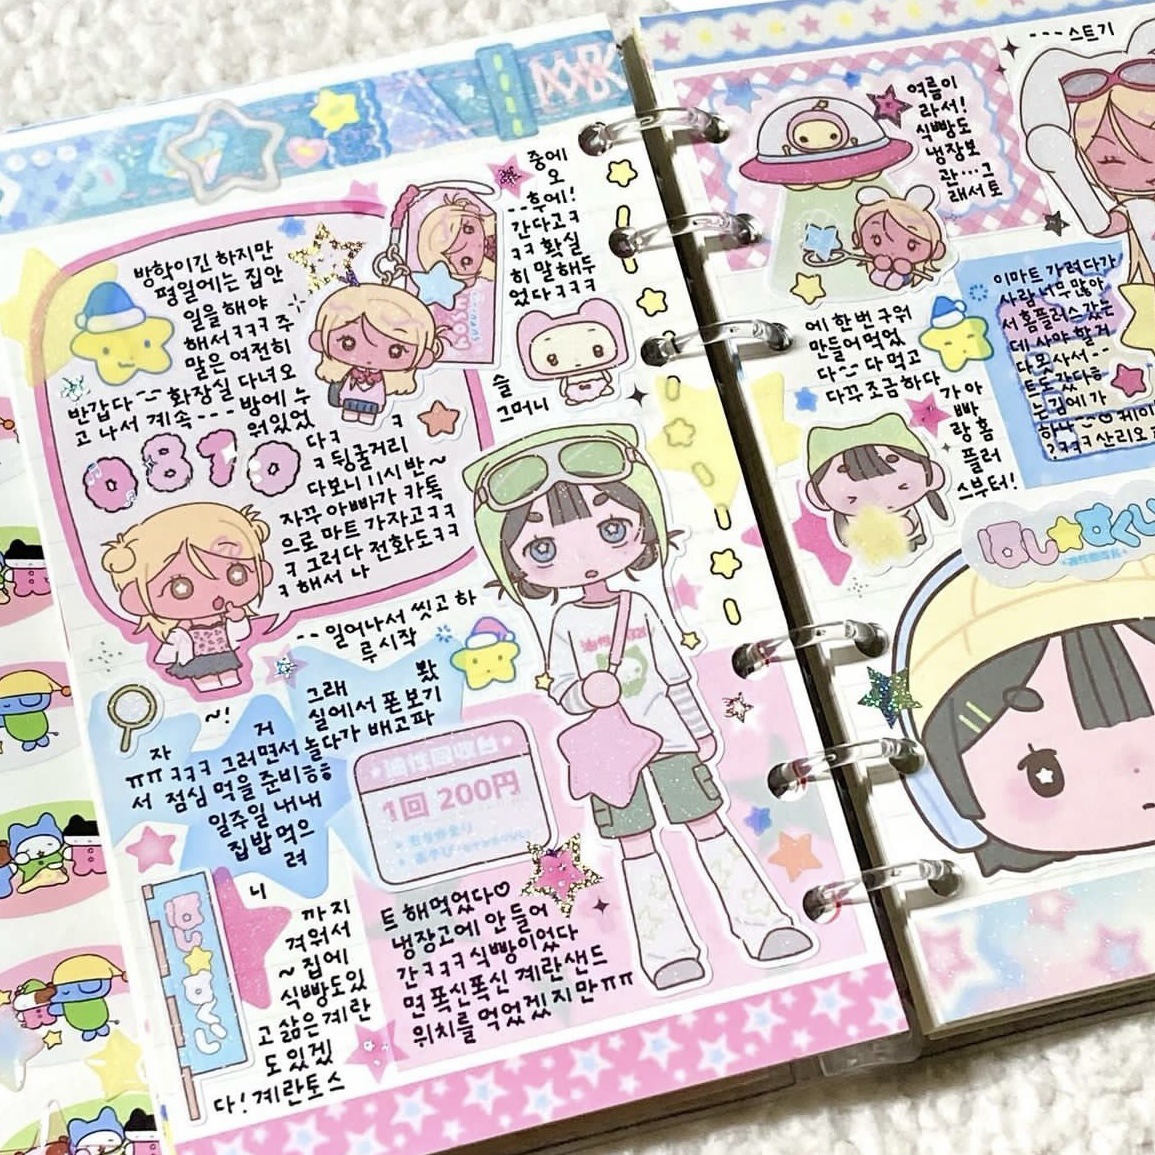 방학이긴 하지만
평일에는 집안
일을 해야
해서ㅋㅋㅋ 주
말은 여전히
반갑다~~ 화장실 다녀오
고 나서 계속--- 방에 누
워있었
0810
다ㅋ ㅋ
ㅋ 뒹굴거리
다보니 11시반~
자꾸 아빠가 카톡
으로 마트 가자고ㅋㅋ
ㅋ 그러다 전화도ㅋㅋ
ㅋ 해서 나
중에
오
--후에!
간다고ㅋ
ㅋㅋ 확실
히 말해두
었다ㅋㅋㅋ
슬
그머니
--일어나서 씻고 하
루시작
~!
자 거
ㅠㅠㅋㅋㅋ 그러면서 놀다가 배고파
서 점심 먹을 준비ㅎㅎ
일주일 내내
집밥 먹으
려
그래 봤
실에서 폰보기
油性回収台
1回 200円
니
까 지
겨워서
~집에
식빵도있
고 삶은계란
도 있겠
다! 계란토스
트 해먹었다♡
냉장고에 안 들어
간ㅋㅋㅋ식빵이었다
면 폭신폭신 계란샌드
위치를 먹었겠지만ㅠㅠ
여름이
라서!
식빵도
냉장보
관...그
래서 토
---스트기
에 한번 구워
만들어 먹었
다~~ 다 먹고
다꾸 조금 하다
가 아
빠
랑 홈
플러
스부터!
이마트 가려다가
사람 너무 많아
서 홈플러스 갔는
데 사야 할 거
다 못 사서--